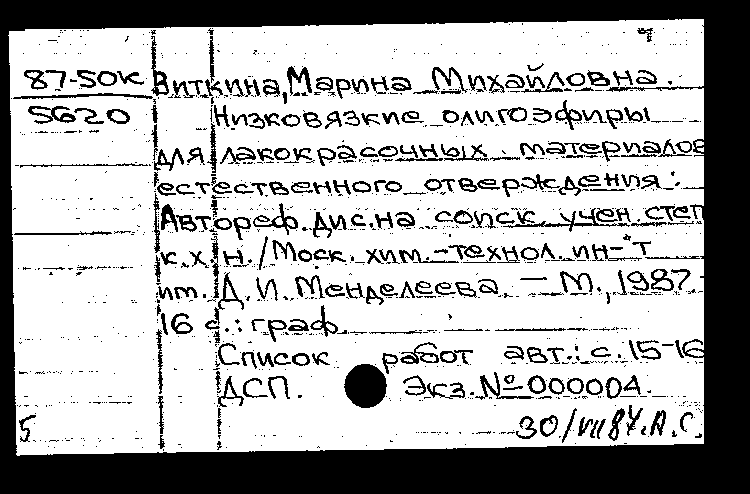 87-50к Виткина, Марина Михайловна.
5620 Низковязкие олигоэфиры
для лакокрасочных материалов
естественного отверждения:
Автореф. дис. на соиск. учен. степ
к.х.н. / Моск. хим.-технол. ин-т
им. Д. И. Менделеева. — М., 1987.-
16 с.: граф.
Список работ авт.: с. 15-16
ДСП. Экз. № 000004.
5 30/VII 87. А.С.